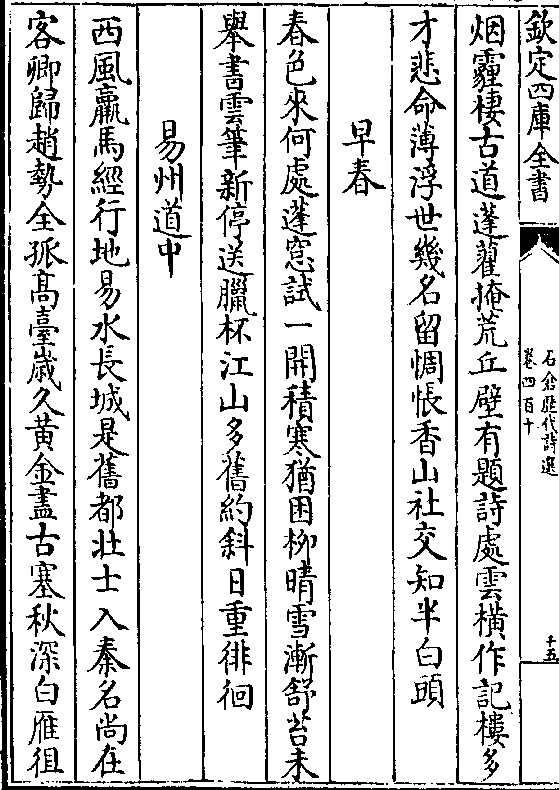 欽定四庫全書
石倉歷代詩選
卷四百十
十五
烟霾棲古道蓬藋掩荒丘壁有題詩處雲橫作記樓多
才悲命薄浮世幾名留惆悵香山社交知半白頭
早春
春色來何處蓬窓試一開積寒猶困柳晴雪漸舒苔未
舉書雲筆新停送臘杯江山多舊約斜日重徘徊
易州道中
西風羸馬經行地易水長城是舊都壯士入秦名尚在
客卿歸趙勢全孤髙臺歲久黃金盡古塞秋深白雁徂